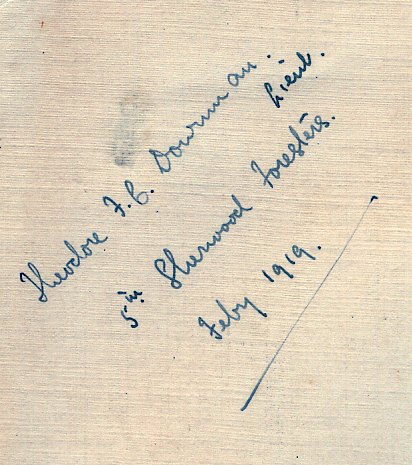 Theodore F. C. Dowman. Lieut.
5th Sherwood Foresters.
Feby 1919.